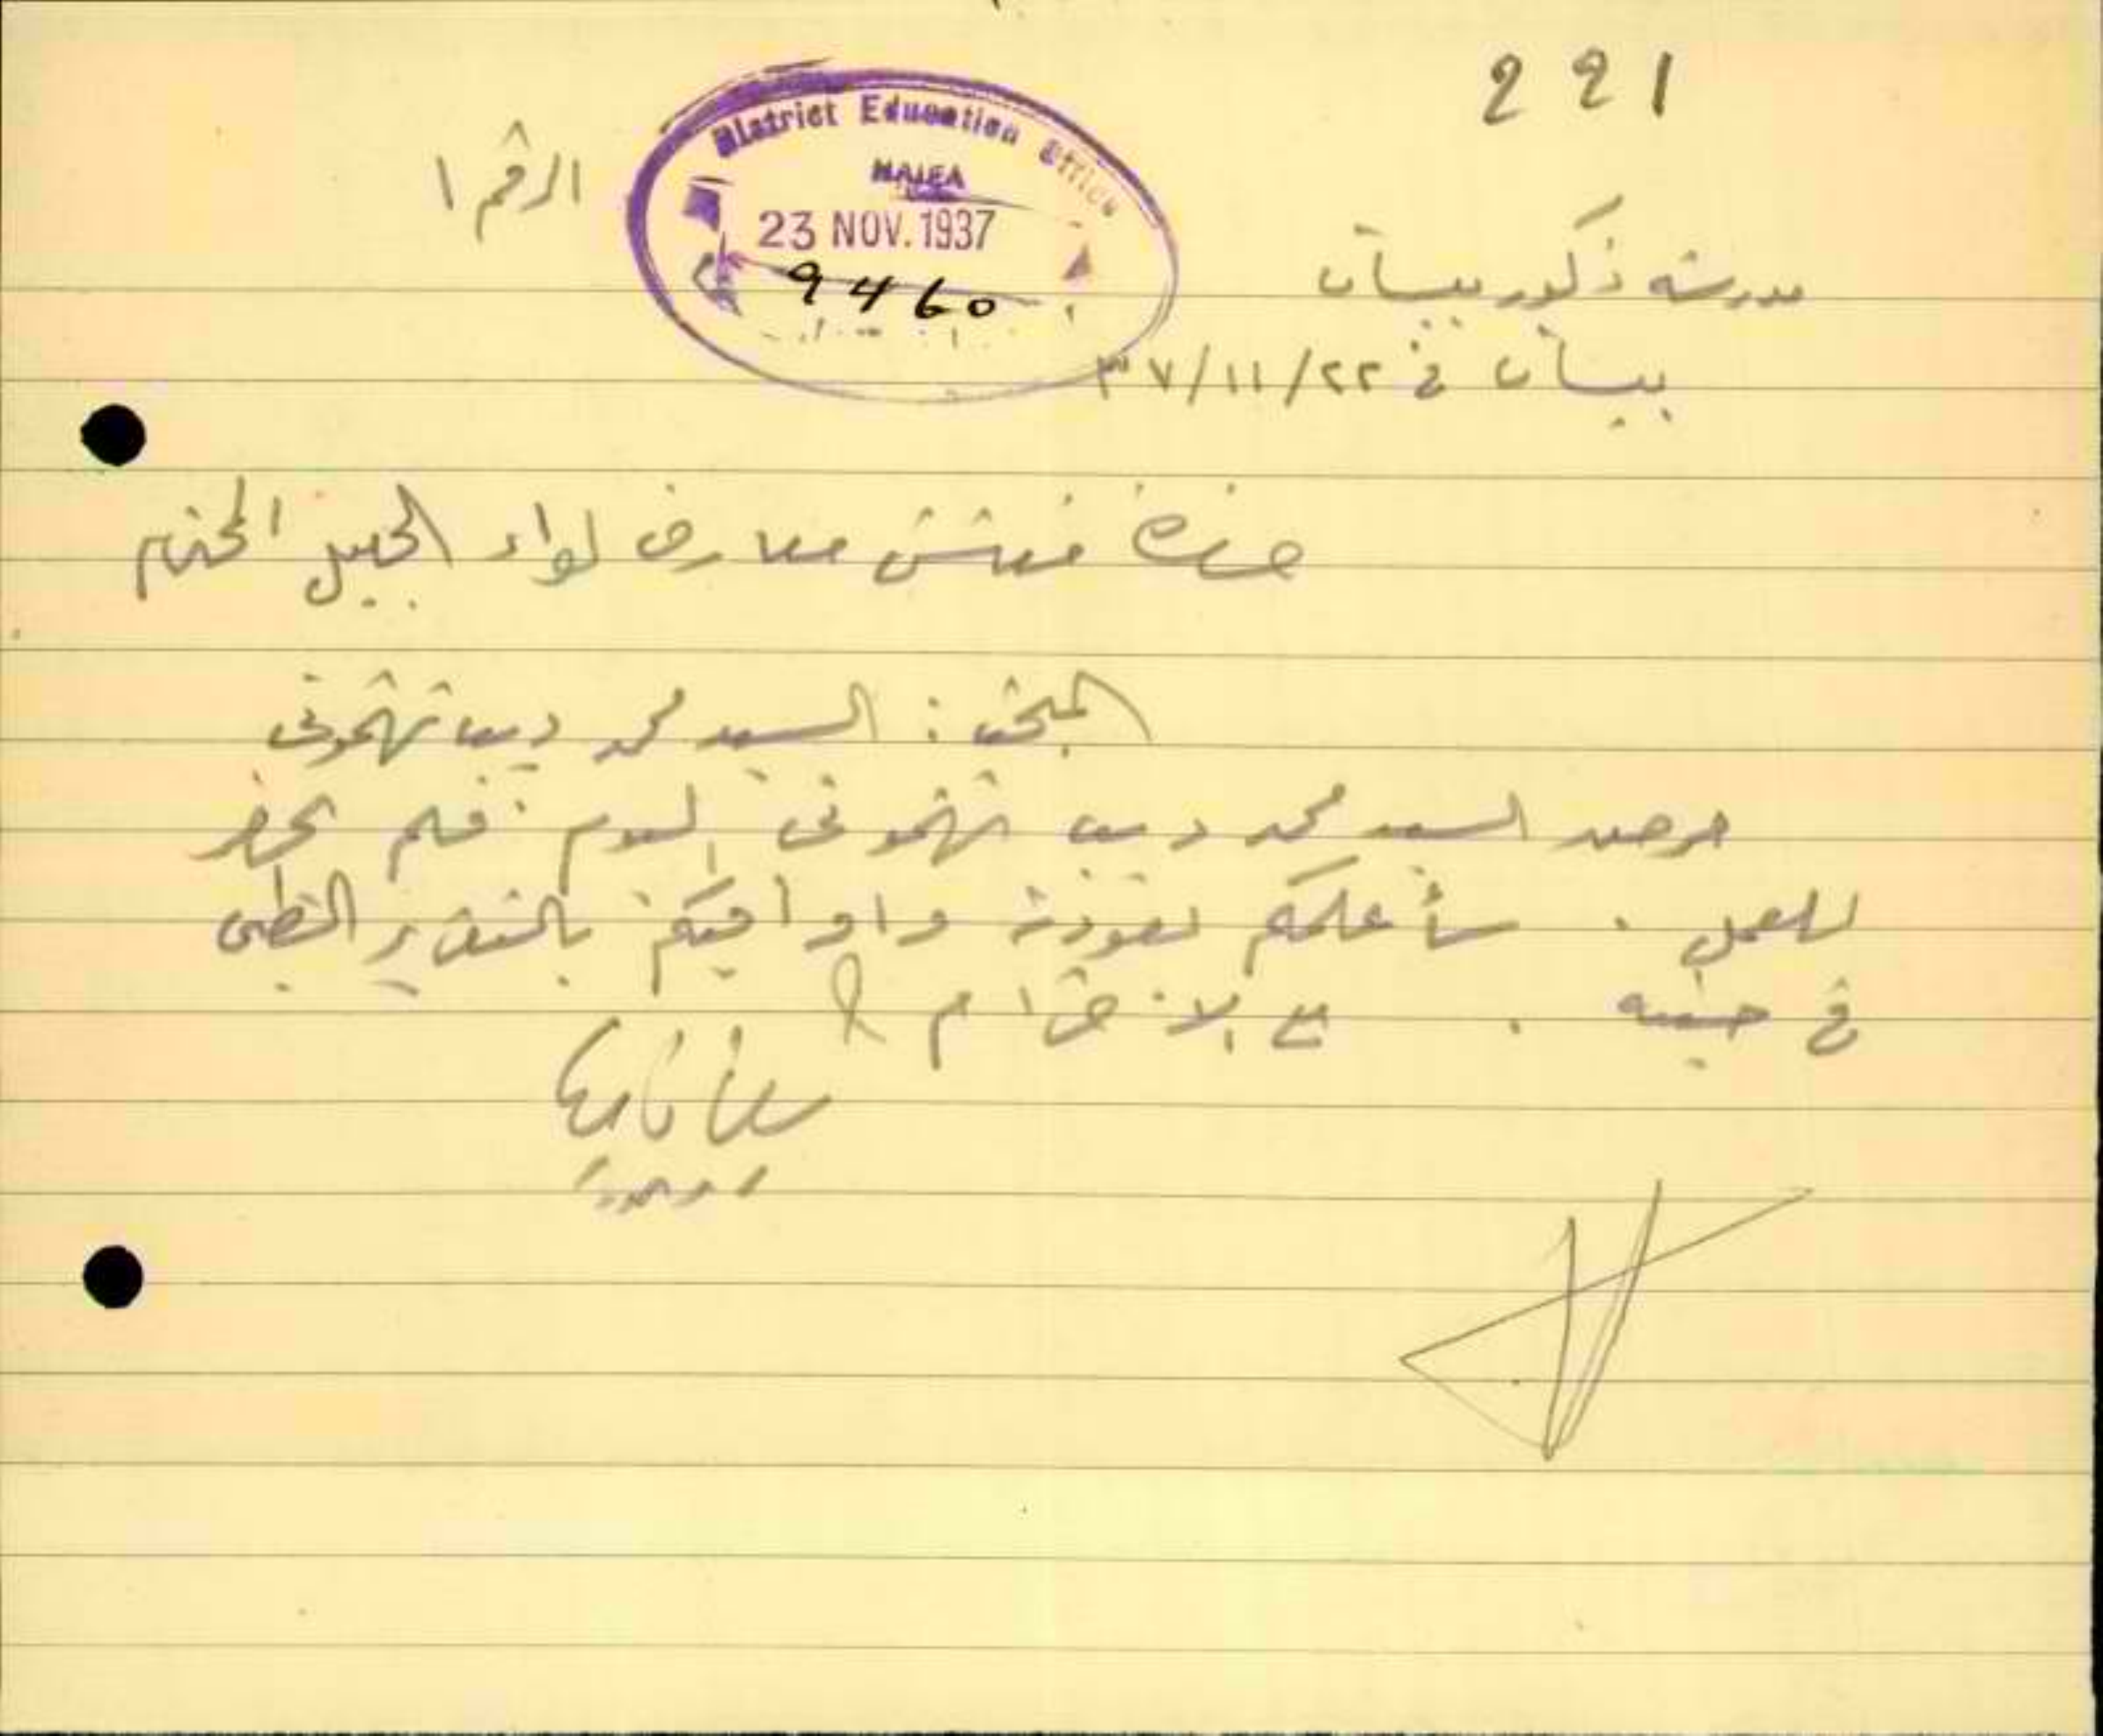 221
District Education Office
HAIFA
23 NOV. 1937
9460
الرقم ١
مدرسة ذكور بيسان
بيسان في ٢٢/١١/٣٧
حضرة مفتش معارف لواء الجليل المحترم
المبحث : السيد محمد ديب تهموني
مرض السيد محمد ديب تهموني اليوم فلم يحضر
للعمل . سأعلمكم بعودته واوافيكم بالتقرير الطبي
في حينه . مع الاحترام